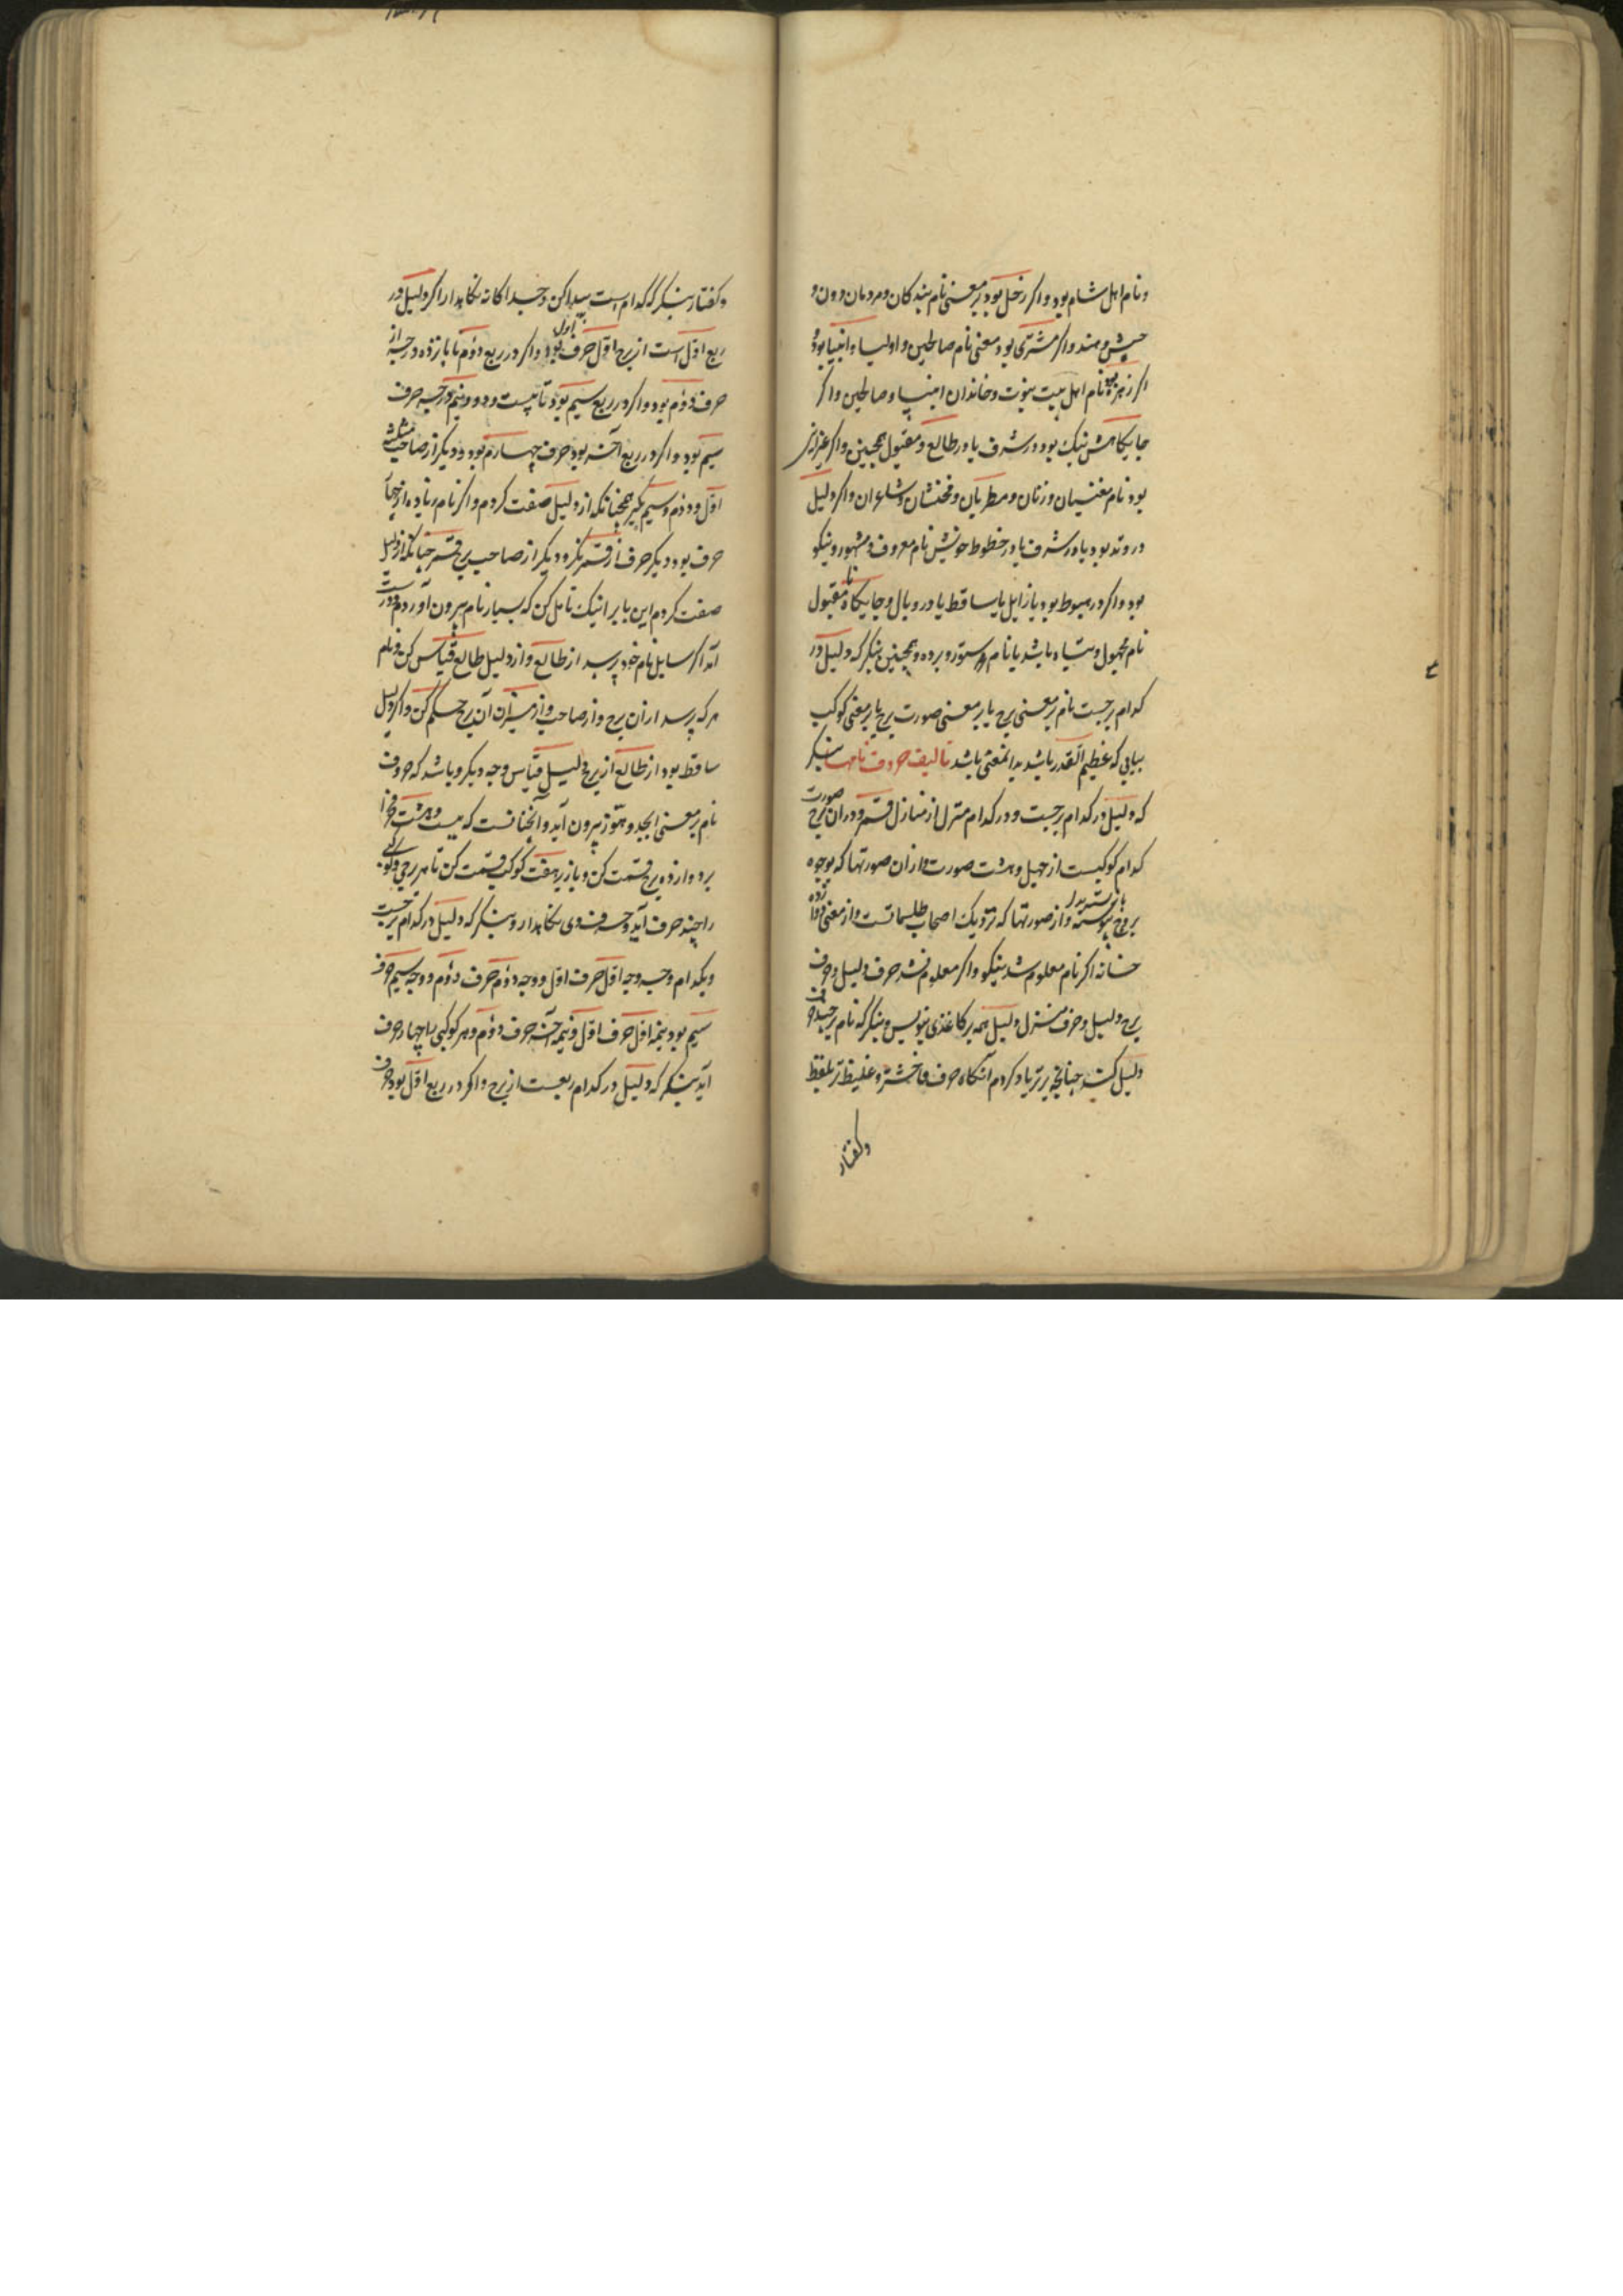 ونام اهل شام بود واکر زحل بود بر معنی نام بندکان ومردمان دون و
حبش وهند واکر مشتری بود معنی نام صالحین واولیا وانبیا بود و
اکر زهره بود نام اهل بیت نبوت وخاندان انبیا وصالحین واکر
جایکاهش نیک بود در شرف یا در طالع ومقبول همچنین واکر غیر ازین
بود نام مغنیان وزنان ومطربان ومخنثان وشاعران واکر دلیل
در وتد بود یا در شرف یا در خطوط خویش نام معروف ومشهور ونیکو
بود واکر در هبوط بود یا زایل یا ساقط یا در وبال وجایکاه نا مقبول
نام مجهول وسیاه باشد یا نام ستور وبرده وهمچنین بنکر که دلیل در
کدام برجست نام بر معنی برج یا بر معنی صورت برج یا بر معنی کوکب
بیابی که عظیم القدر باشد بدانمعنی باشد تالیف حروف نامها بنکر
که دلیل در کدام برجست ودر کدام منزل از منازل قمر ودران برج صورت
کدام کوکبست از چهل وهشت صورت واز ان صورتها که بوجوه
بروج پیوسته واز صورتها که نزدیک اصحاب طلسماتست واز معنی دوازده
خانه اکر نام معلوم شد نیکو واکر معلوم نشد حرف دلیل وحرف
برج دلیل وحرف منزل دلیل همه بر کاغذی بنویس وبنکر که نام بر چند حرف
دلیل کند چنانچه برتر یاد کردم آنکاه حرف فاحشتر وغلیظتر بلفظ
وکفتار
وکفتار بنکر که کدام است پیدا کن وجدا کانه نکاهدار اکر دلیل در
ربع اول است از برج اول حرف اول بود واکر در ربع دوم تا پانزده درجه از
حرف دوم بود واکر در ربع سیم بود تا بیست ودو ونیم درجه حرف
سیم بود واکر در ربع آخر بود حرف چهارم بود ودیکر از صاحب مثلثه
اول ودوم وسیم بکیر همچنانکه از دلیل صفت کردم واکر نام زیاده از پنج
حرف بود دیکر حرف از قمر بکیر ودیکر از صاحب برج قمر چنانکه از دلیل
صفت کردم این باب را نیک تامل کن که بسیار نام بیرون آوردم ودرست
آمد اکر سایل نام خود پرسد از طالع واز دلیل طالع قیاس کن ونام
هرکه پرسد از ان برج واز صاحب واز میزان آن برج حکم کن واکر دلیل
ساقط بود از طالع از برج دلیل قیاس وجه دیکر وباشد که حروف
نام بر معنی ابجد وهوز بیرون آید وآنچنانست که بیست وهشت حرف را
بر دوازده برج قسمت کن وباز بر هفت کوکب قسمت کن تا هر برجی وکوکبی
را چند حرف آید وحرف وی نکاهدار وبنکر که دلیل در کدام برجست
وبکدام وجه وجه اول حرف اول ووجه دوم حرف دوم ووجه سیم حرف
سیم بود نیمه اول حرف اول ونیمه آخر حرف دوم وهر کوکبی را چهار حرف
آید بنکر که دلیل در کدام ربعست از برج واکر در ربع اول بود حرف